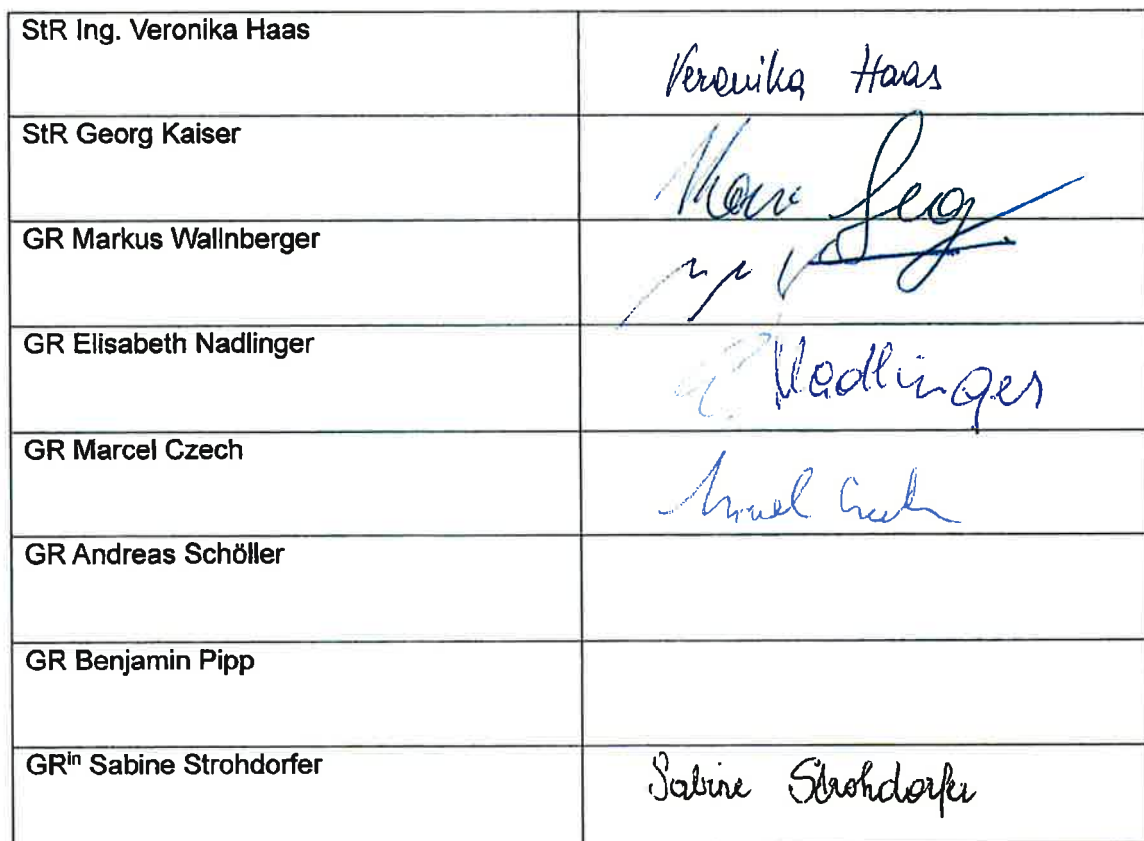 StR Ing. Veronika Haas
Veronika Haas
StR Georg Kaiser
GR Markus Wallnberger
GR Elisabeth Nadlinger
Nadlinger
GR Marcel Czech
GR Andreas Schöller
GR Benjamin Pipp
GRⁱⁿ Sabine Strohdorfer
Sabine Strohdorfer